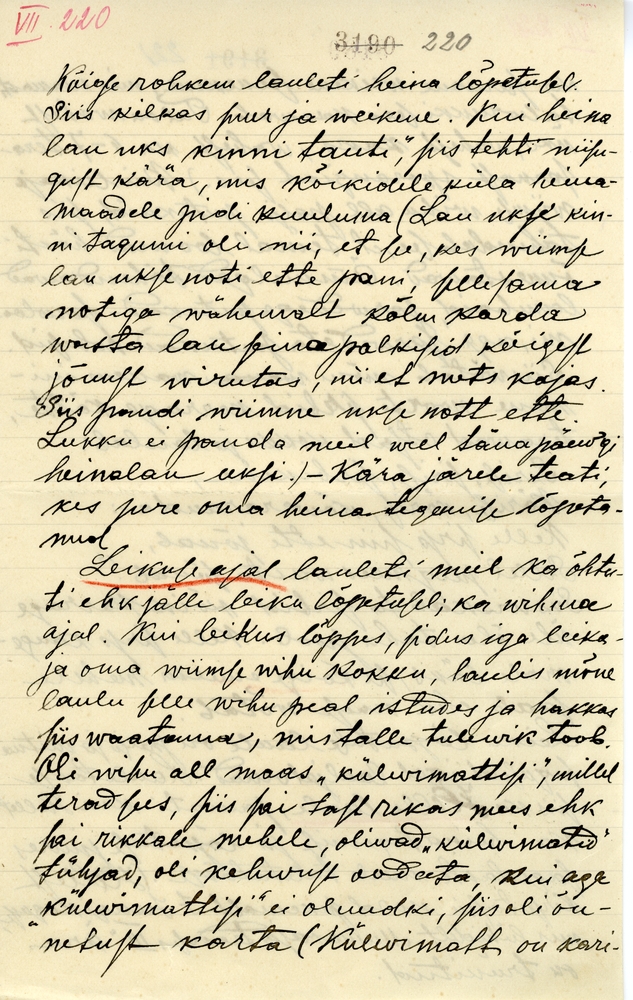 VII. 220
3190 220
Kõige rohkem lauleti heina lõpetusel.
Siis kilkas suur ja weikene. Kui heina
lau uks kinni tauti", siis tehti niisu-
gust kära, mis kõikidele küla heina-
maadele pidi kuuluma (Lau ukse kin-
ni tagumi oli nii, et se, kes wiimse
lau ukse noti ette pani, sellesama
notiga wähemalt kolm korda
wasta lau seinapalkisid kõigest
jõuust wirutas, nii et mets kajas.
Siis pandi wiimne ukse nott ette.
Lukku ei panda meil weel tänapäewgi
heinalau uksi.) - Kära järele teati,
kes pere oma heina tegemise lõpeta-
nud.
Leikuse ajal lauleti meil ka õhtu-
ti ehk jälle leiku lõpetusel; ka wihma
ajal. Kui leikus lõppes, sidus iga leika-
ja oma wiimse wihu kokku, laulis mõne
laulu selle wihu peal istudes ja hakkas
siis waatama, mis talle tulewik toob.
Oli wihu all maas "külwimattisi", millel
terad sees, siis sai sast rikas mees ehk
sai rikkale mehele, oliwad "külwimatid"
tühjad, oli kehwust oodata, kui aga
"külwimattisi" ei olnudki, siis oli õn-
netust karta (Külwimatt on kari-